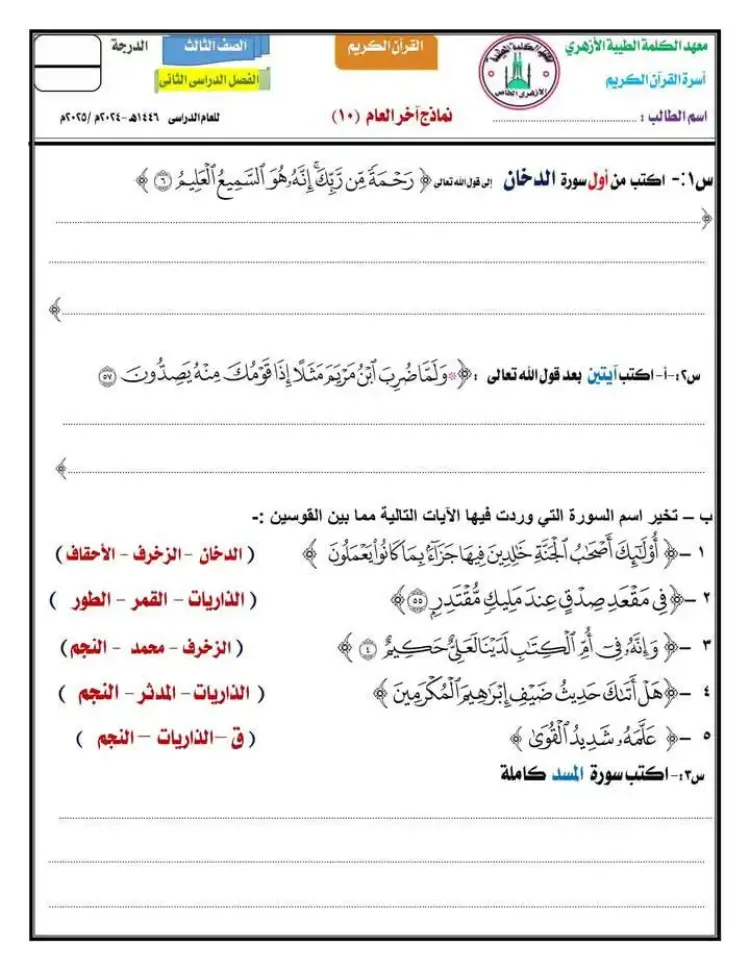 معهد الكلمة الطيبة الأزهري
القرآن الكريم
الصف الثالث
الدرجة
أسرة القرآن الكريم
الفصل الدراسى الثانى
اسم الطالب : ........................
نماذج آخر العام (١٠)
للعام الدراسى ١٤٤٦هـ -٢٠٢٤م /٢٠٢٥م
س١:- اكتب من أول سورة الدخان إلى قول الله تعالى ﴿ رَحْمَةً مِّن رَّبِّكَ ۚ إِنَّهُ هُوَ السَّمِيعُ الْعَلِيمُ ٦ ﴾
س٢:-أ- اكتب آيتين بعد قول الله تعالى : ﴿ ۞ وَلَمَّا ضُرِبَ ابْنُ مَرْيَمَ مَثَلًا إِذَا قَوْمُكَ مِنْهُ يَصِدُّونَ ٥٧
ب – تخير اسم السورة التي وردت فيها الآيات التالية مما بين القوسين :-
١ -﴿ أُوْلَٰٓئِكَ أَصْحَٰبُ الْجَنَّةِ خَٰلِدِينَ فِيهَا جَزَآءً بِمَا كَانُوا۟ يَعْمَلُونَ ﴾ ( الدخان - الزخرف - الأحقاف )
٢ -﴿ فِى مَقْعَدِ صِدْقٍ عِندَ مَلِيكٍ مُّقْتَدِرٍ ٥٥ ﴾ ( الذاريات - القمر - الطور )
٣ -﴿ وَإِنَّهُۥ فِىٓ أُمِّ الْكِتَٰبِ لَدَيْنَا لَعَلِىٌّ حَكِيمٌ ٤ ﴾ ( الزخرف - محمد - النجم )
٤ -﴿ هَلْ أَتَىٰكَ حَدِيثُ ضَيْفِ إِبْرَٰهِيمَ الْمُكْرَمِينَ ﴾ ( الذاريات - المدثر - النجم )
٥ -﴿ عَلَّمَهُۥ شَدِيدُ الْقُوَىٰ ﴾ ( ق - الذاريات - النجم )
س٣:- اكتب سورة المسد كاملة